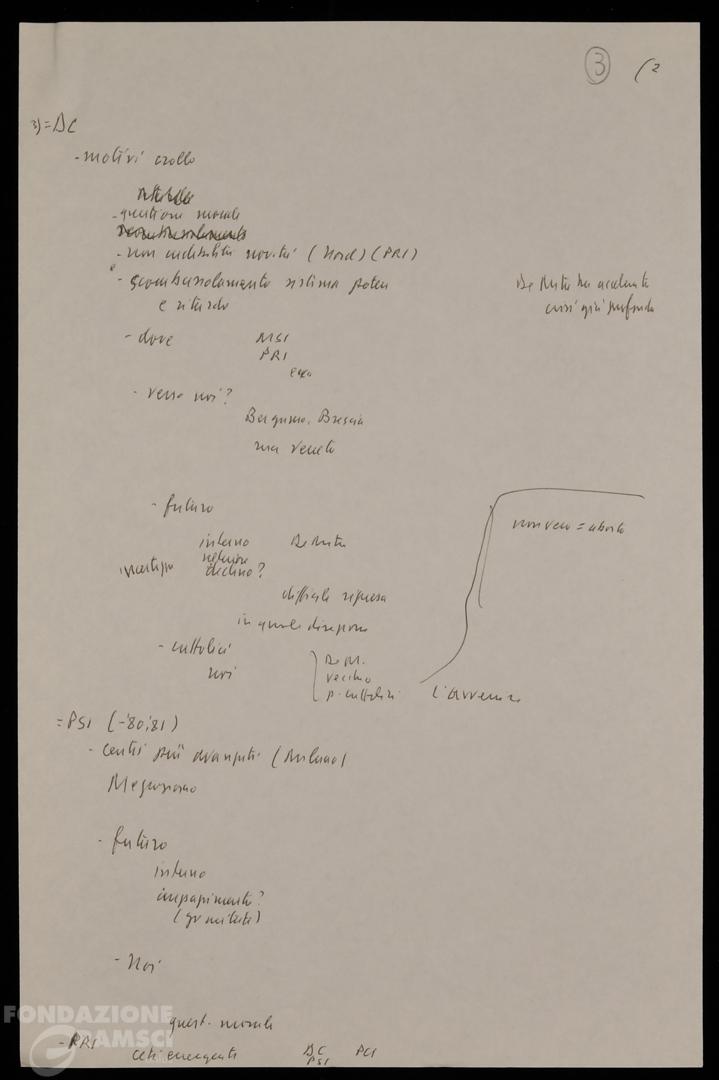 3 (2
3) = DC
- motivi crollo
- questione morale
- non credibilità novità (Nord) (PRI)
- scombussolamento sistema potere
e ritardo
De Mita ha accelerato
crisi già profonda
- dove MSI
PRI
- verso noi?
Bergamo, Brescia
ma Veneto
- futuro
non vero = aborto
interno De Mita
declino?
difficile ripresa
in quale direzione
- cattolici
noi
De M.
vecchio
p. cattolici
L'avvenire
= PSI (-'80,'81)
- centri più avanzati (Milano)
Mezzogiorno
- futuro
interno
(giunte)
- Noi
quest. morale
- PRI
ceti emergenti DC PCI
PSI
FONDAZIONE
GRAMSCI